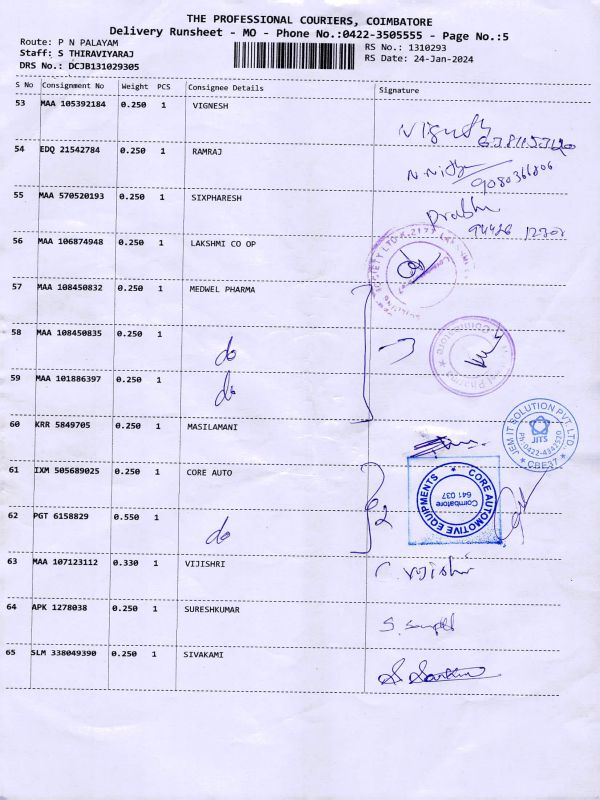 THE PROFESSIONAL COURIERS, COIMBATORE
Delivery Runsheet - MO - Phone No.:0422-3505555 - Page No.:5
Route: P N PALAYAM
RS No.: 1310293
Staff: S THIRAVIYARAJ
RS Date: 24-Jan-2024
DRS No.: DCJB131029305
S No Consignment No Weight PCS Consignee Details Signature
53 MAA 105392184 0.250 1 VIGNESH
54 EDQ 21542784 0.250 1 RAMRAJ
9080366806
55 MAA 570520193 0.250 1 SIXPHARESH
Prabhu
56 MAA 106874948 0.250 1 LAKSHMI CO OP
57 MAA 108450832 0.250 1 MEDWEL PHARMA
58 MAA 108450835 0.250 1 do
3
59 MAA 101886397 0.250 1 do
60 KRR 5849705 0.250 1 MASILAMANI
JEM IT SOLUTION PVT. LTD
JITS
Ph:0422-4342520
* CBE37 *
61 IXM 505689025 0.250 1 CORE AUTO
2
CORE AUTOMOTIVE EQUIPMENTS
Coimbatore
641 037
62 PGT 6158829 0.550 1 do
63 MAA 107123112 0.330 1 VIJISHRI
C. Vijishri
64 APK 1278038 0.250 1 SURESHKUMAR
65 SLM 338049390 0.250 1 SIVAKAMI